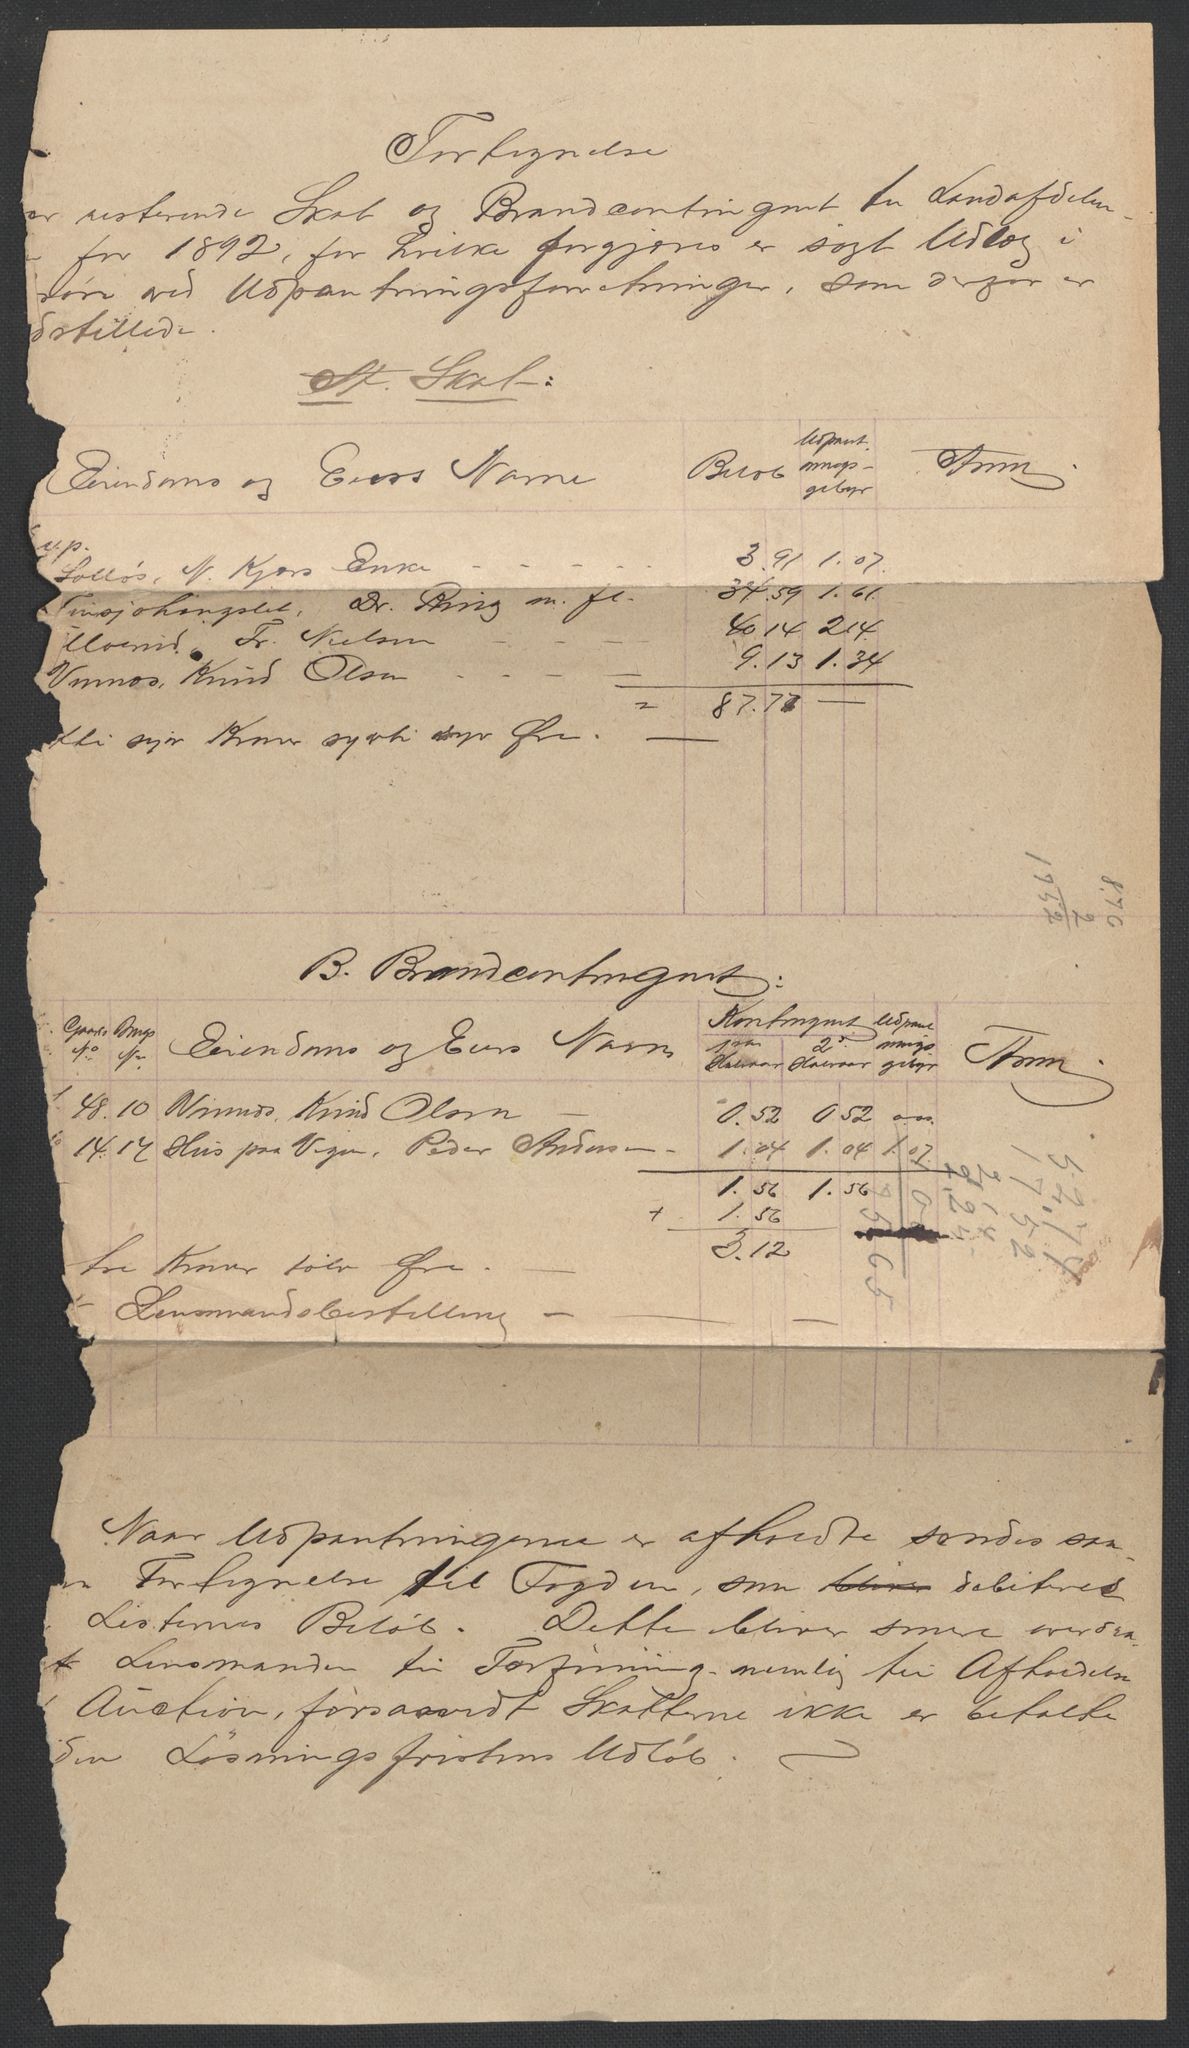 Fortegnelse
over resterende Skat og Brandcontingent for Landafdelin-
for 1892, for hvilke forgjæves er søgt Udlæg i
ved Udpantningsforretninger, som derfor er
dstillede.
A. Skat:
Eiendoms og Eiers Navn
Beløb
Udpant
nings-
gebyr
Anm.
up.
Solløs, N. Kjærs Enke - - - - - 3.91 1.07.
Dr. Ring m. fl. 34.59 1.61.
Fr. Nielsen - - - - 40 14 2 14
Vinnes, Knud Olsen - - - - 9.13 1.34
= 87.77 —
otti syv Kroner sytti syv Øre. —
8.76
2
17 52
B. Brandcontingent:
Gaards
No
Brugs
No
Eiendoms og Eiers Navn
Kontingent
1ste
Halvaar
2d
Halvaar
Udpant
nings-
gebyr
Anm.
48. 10 Vinnes, Knud Olsen — 0.52 0 52
14. 14 Hus paa Vegen, Peder Andersen - 1.04 1.04 1.07
1.56 1.56
+ 1.56
3.12
tre Kroner tolv Øre. —
Lensmandsbestilling — — —
Naar Udpantningerne er afholdte sendes saa-
n Fortegnelse til Fogden, som bliver debiteret
Listernes Beløb. Dette bliver senere overdra-
t Lensmanden til Forføining nemlig til Afholdelse
Auction, forsaavidt Skatterne ikke er betalte
den Løsningsfristens Udløb.